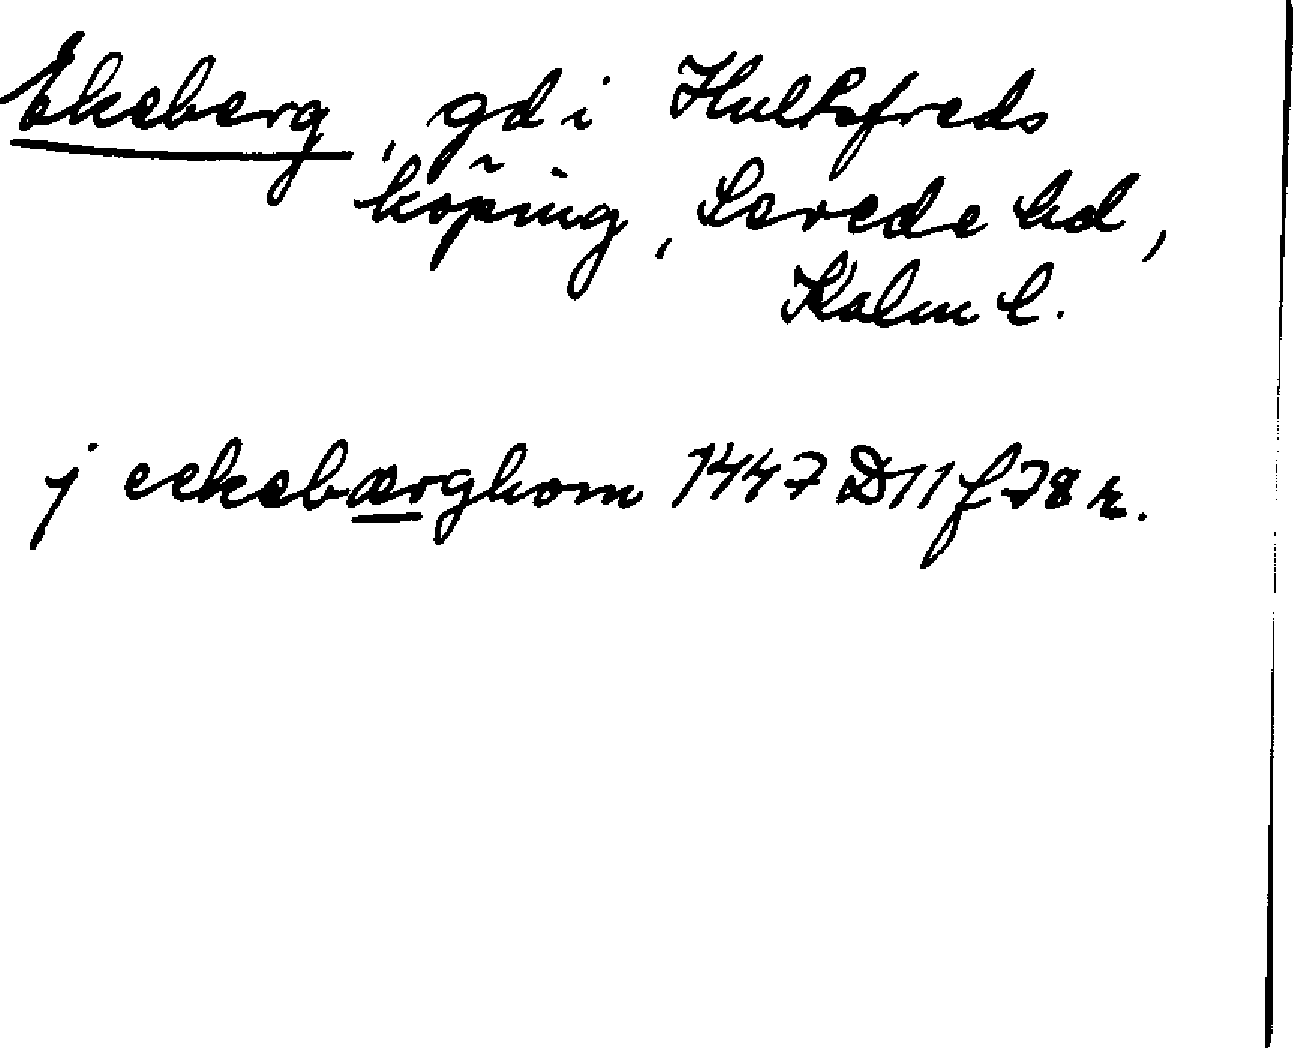 Ekeberg, gd i Hultsfreds
köping, Sevede hd,
Kalm l.
j eekebærghom 1447 D11 f 78 r.